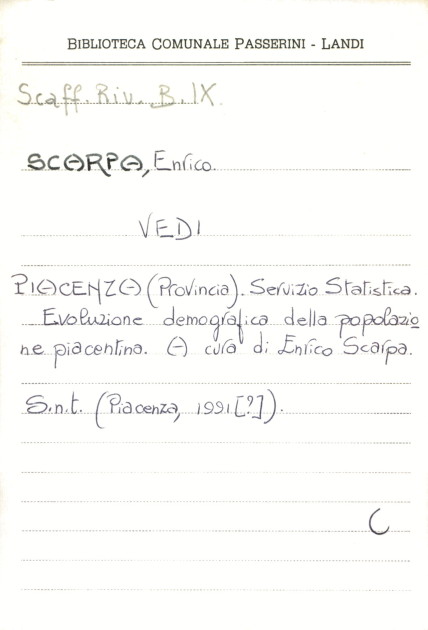 BIBLIOTECA COMUNALE PASSERINI - LANDI
Scaff. Riv. B. IX.
SCARPA, Enrico.
VEDI
PIACENZA (Provincia). Servizio Statistica.
Evoluzione demografica della popolazio
ne piacentina. A cura di Enrico Scarpa.
S.n.t. (Piacenza, 1991[?]).
C